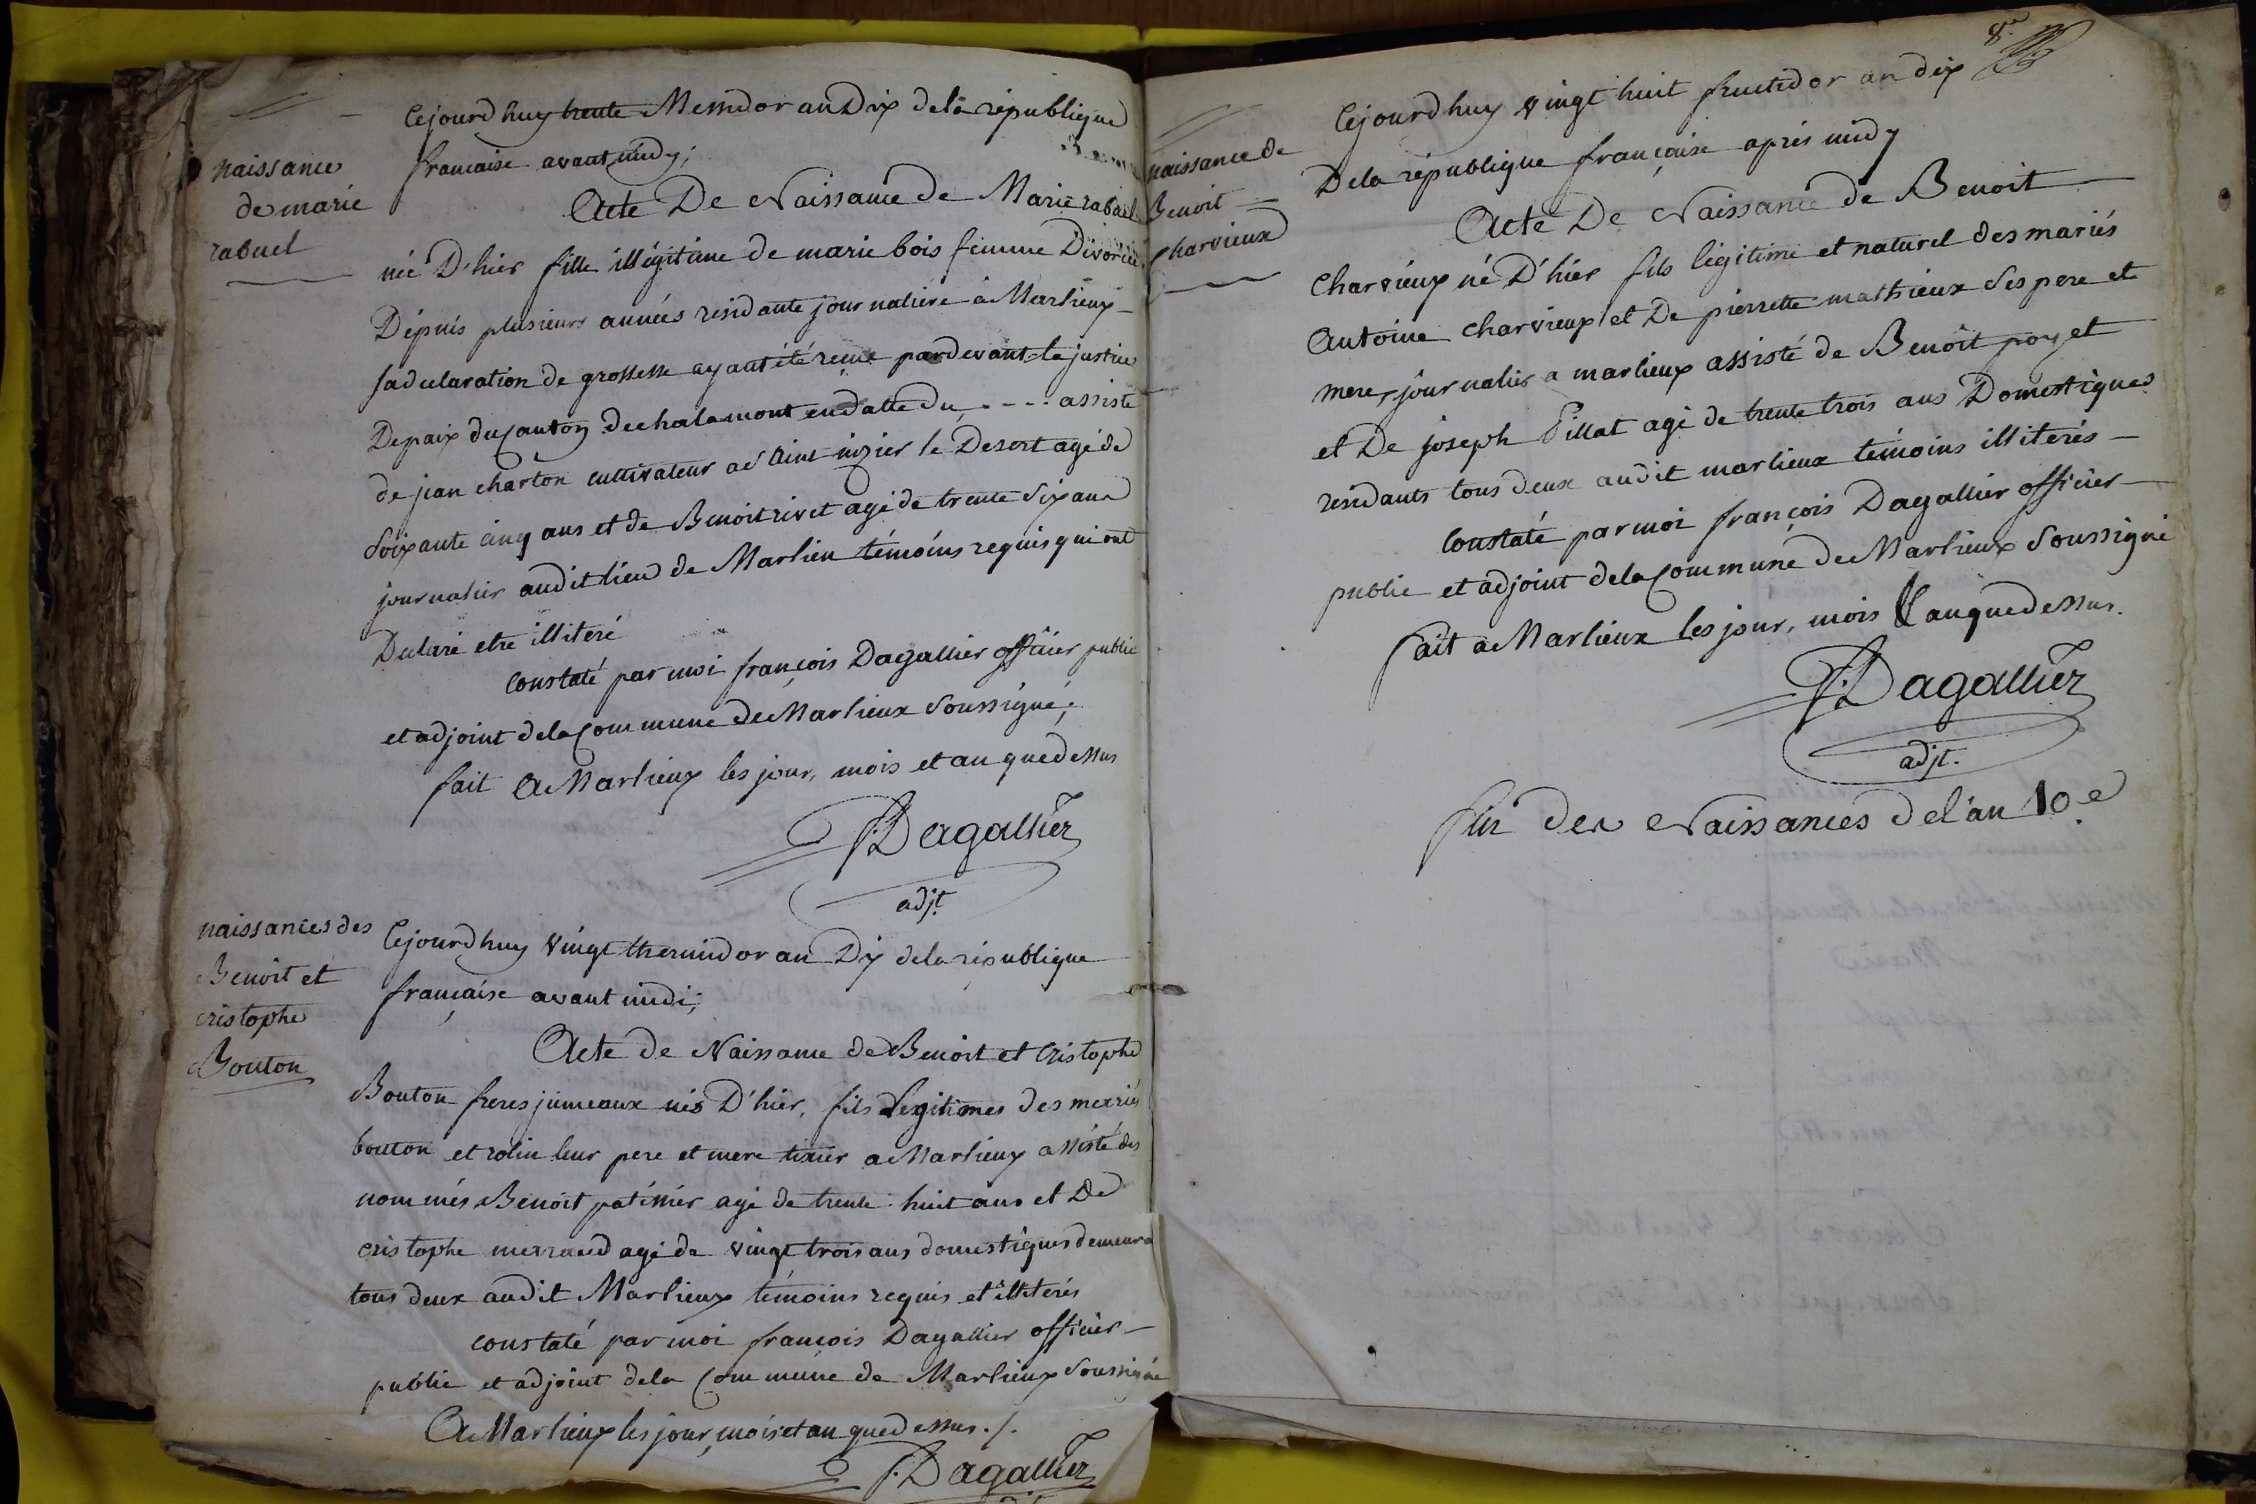 naissance
de marie
rabuel
Cejourdhuy trente Messidor an Dix dela république
francaise avant midy;
Acte De Naissance de Marie rabuel
née D'hier fille illégitime de marie bois femme Divorcée
Dépuis plusieurs années residante journaliere à Marlieux
sa declaration de grossesse ayant été reçue pardevant le justice
De paix du Canton de chalamont en datte du - - - - assisté
de jean charton cultivateur a saint nizier le Desert agé de
soixante cinq ans et de Benoit rivet agé de trente six ans
journalier audit lieu de Marlieu témoins requis qui ont
Declaré etre illiteré
constaté par moi françois Dagallier officier public
et adjoint dela Commune de Marlieux Soussigné;
fait A Marlieux les jour, mois et an que dessus
F. Dagallier
adjt.
naissances des
Benoit et
cristophe
Bouton
Cejourdhuy vingt thermidor an Dix dela république
française avant midi;
Acte de Naissance de Benoit et Cristophe
Bouton freres jumeaux nés D'hier, fils Legitimes des mariés
bouton et rolin leur pere et mere tixier a Marlieux assisté des
nommés Benoit patissier agé de trente huit ans et De
cristophe merraud agé de vingt trois ans domestiques demeura
tous deux audit Marlieux témoins requis et illiterés
constaté par moi françois Dagallier officier
public et adjoint dela Commune de Marlieux Soussigné
A Marlieux les jour, mois et an que dessus ./.
F. Dagallier
8.e
naissance de
Benoit
Charvieux
Cejourdhuy vingt huit fructidor an dix
Dela république française aprés midy
Acte De Naissance de Benoit
Charvieux né D'hier fils légitime et naturel des mariés
Antoine charvieux et De pierrette mathieux ses pere et
mere, journalier a marlieux assisté de Benoit poyet
et De joseph Pillat agé de trente trois ans Domestiques
residants tous deux audit marlieux témoins illiterés
Constaté par moi françois Dagallier officier
public et adjoint dela Commune de Marlieux Soussigné
fait a Marlieux les jour, mois & an que dessus.
F. Dagallier
adjt.
fin des Naissances de l'an 10.e